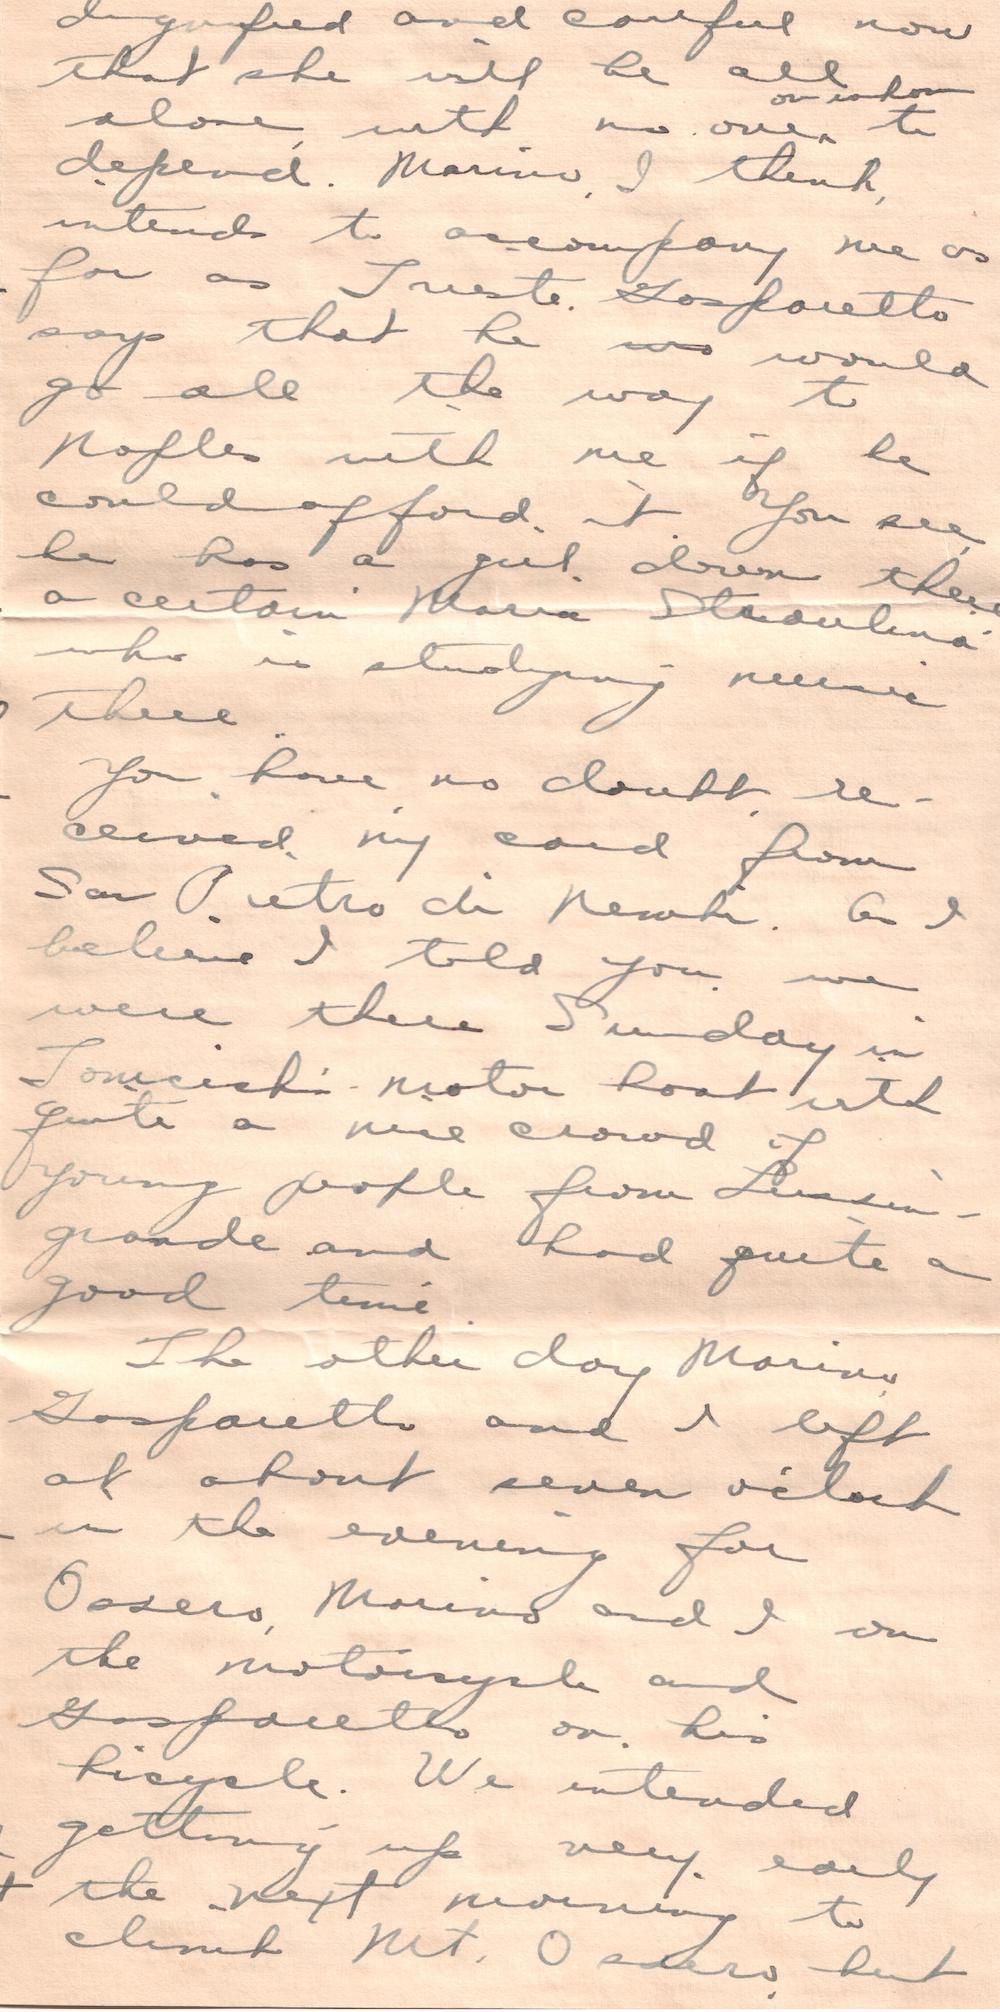 dignified and careful now
that she will be all
alone, with no one on whom to
depend. Marino, I think,
intends to accompany me as
far as Trieste. Gasparetto
says that he was would
go all the way to
Naples with me if he
could afford it. You see,
he has a girl down there
a certain Maria
who is studying music
there.
You have no doubt re-
ceived my card from
San Pietro di Nembi. As I
believe I told you we
were there Sunday in
motor boat with
quite a nice crowd of
young people from Lussin-
grande and had quite a
good time.
The other day Marino,
Gasparetto and I left
at about seven o'clock
in the evening for
Ossero, Marino and I on
the motorcycle and
Gasparetto on his
bicycle. We intended
getting up very early
the next morning to
climb Mt. Ossero, but